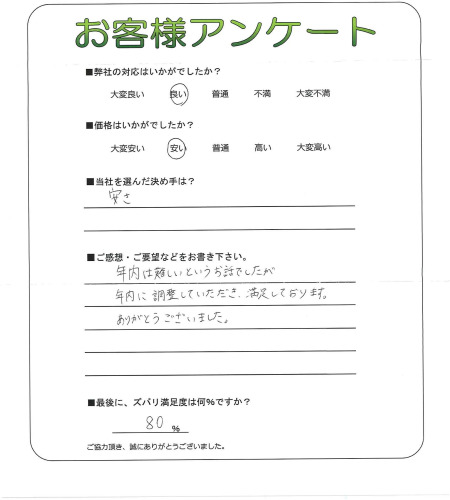 お客様アンケート
■弊社の対応はいかがでしたか？
大変良い 良い 普通 不満 大変不満
■価格はいかがでしたか？
大変安い 安い 普通 高い 大変高い
■当社を選んだ決め手は？
安さ
■ご感想・ご要望などをお書き下さい。
年内は難しいというお話でしたが
年内に調整していただき、満足しております。
ありがとうございました。
■最後に、ズバリ満足度は何%ですか？
80 %
ご協力頂き、誠にありがとうございました。